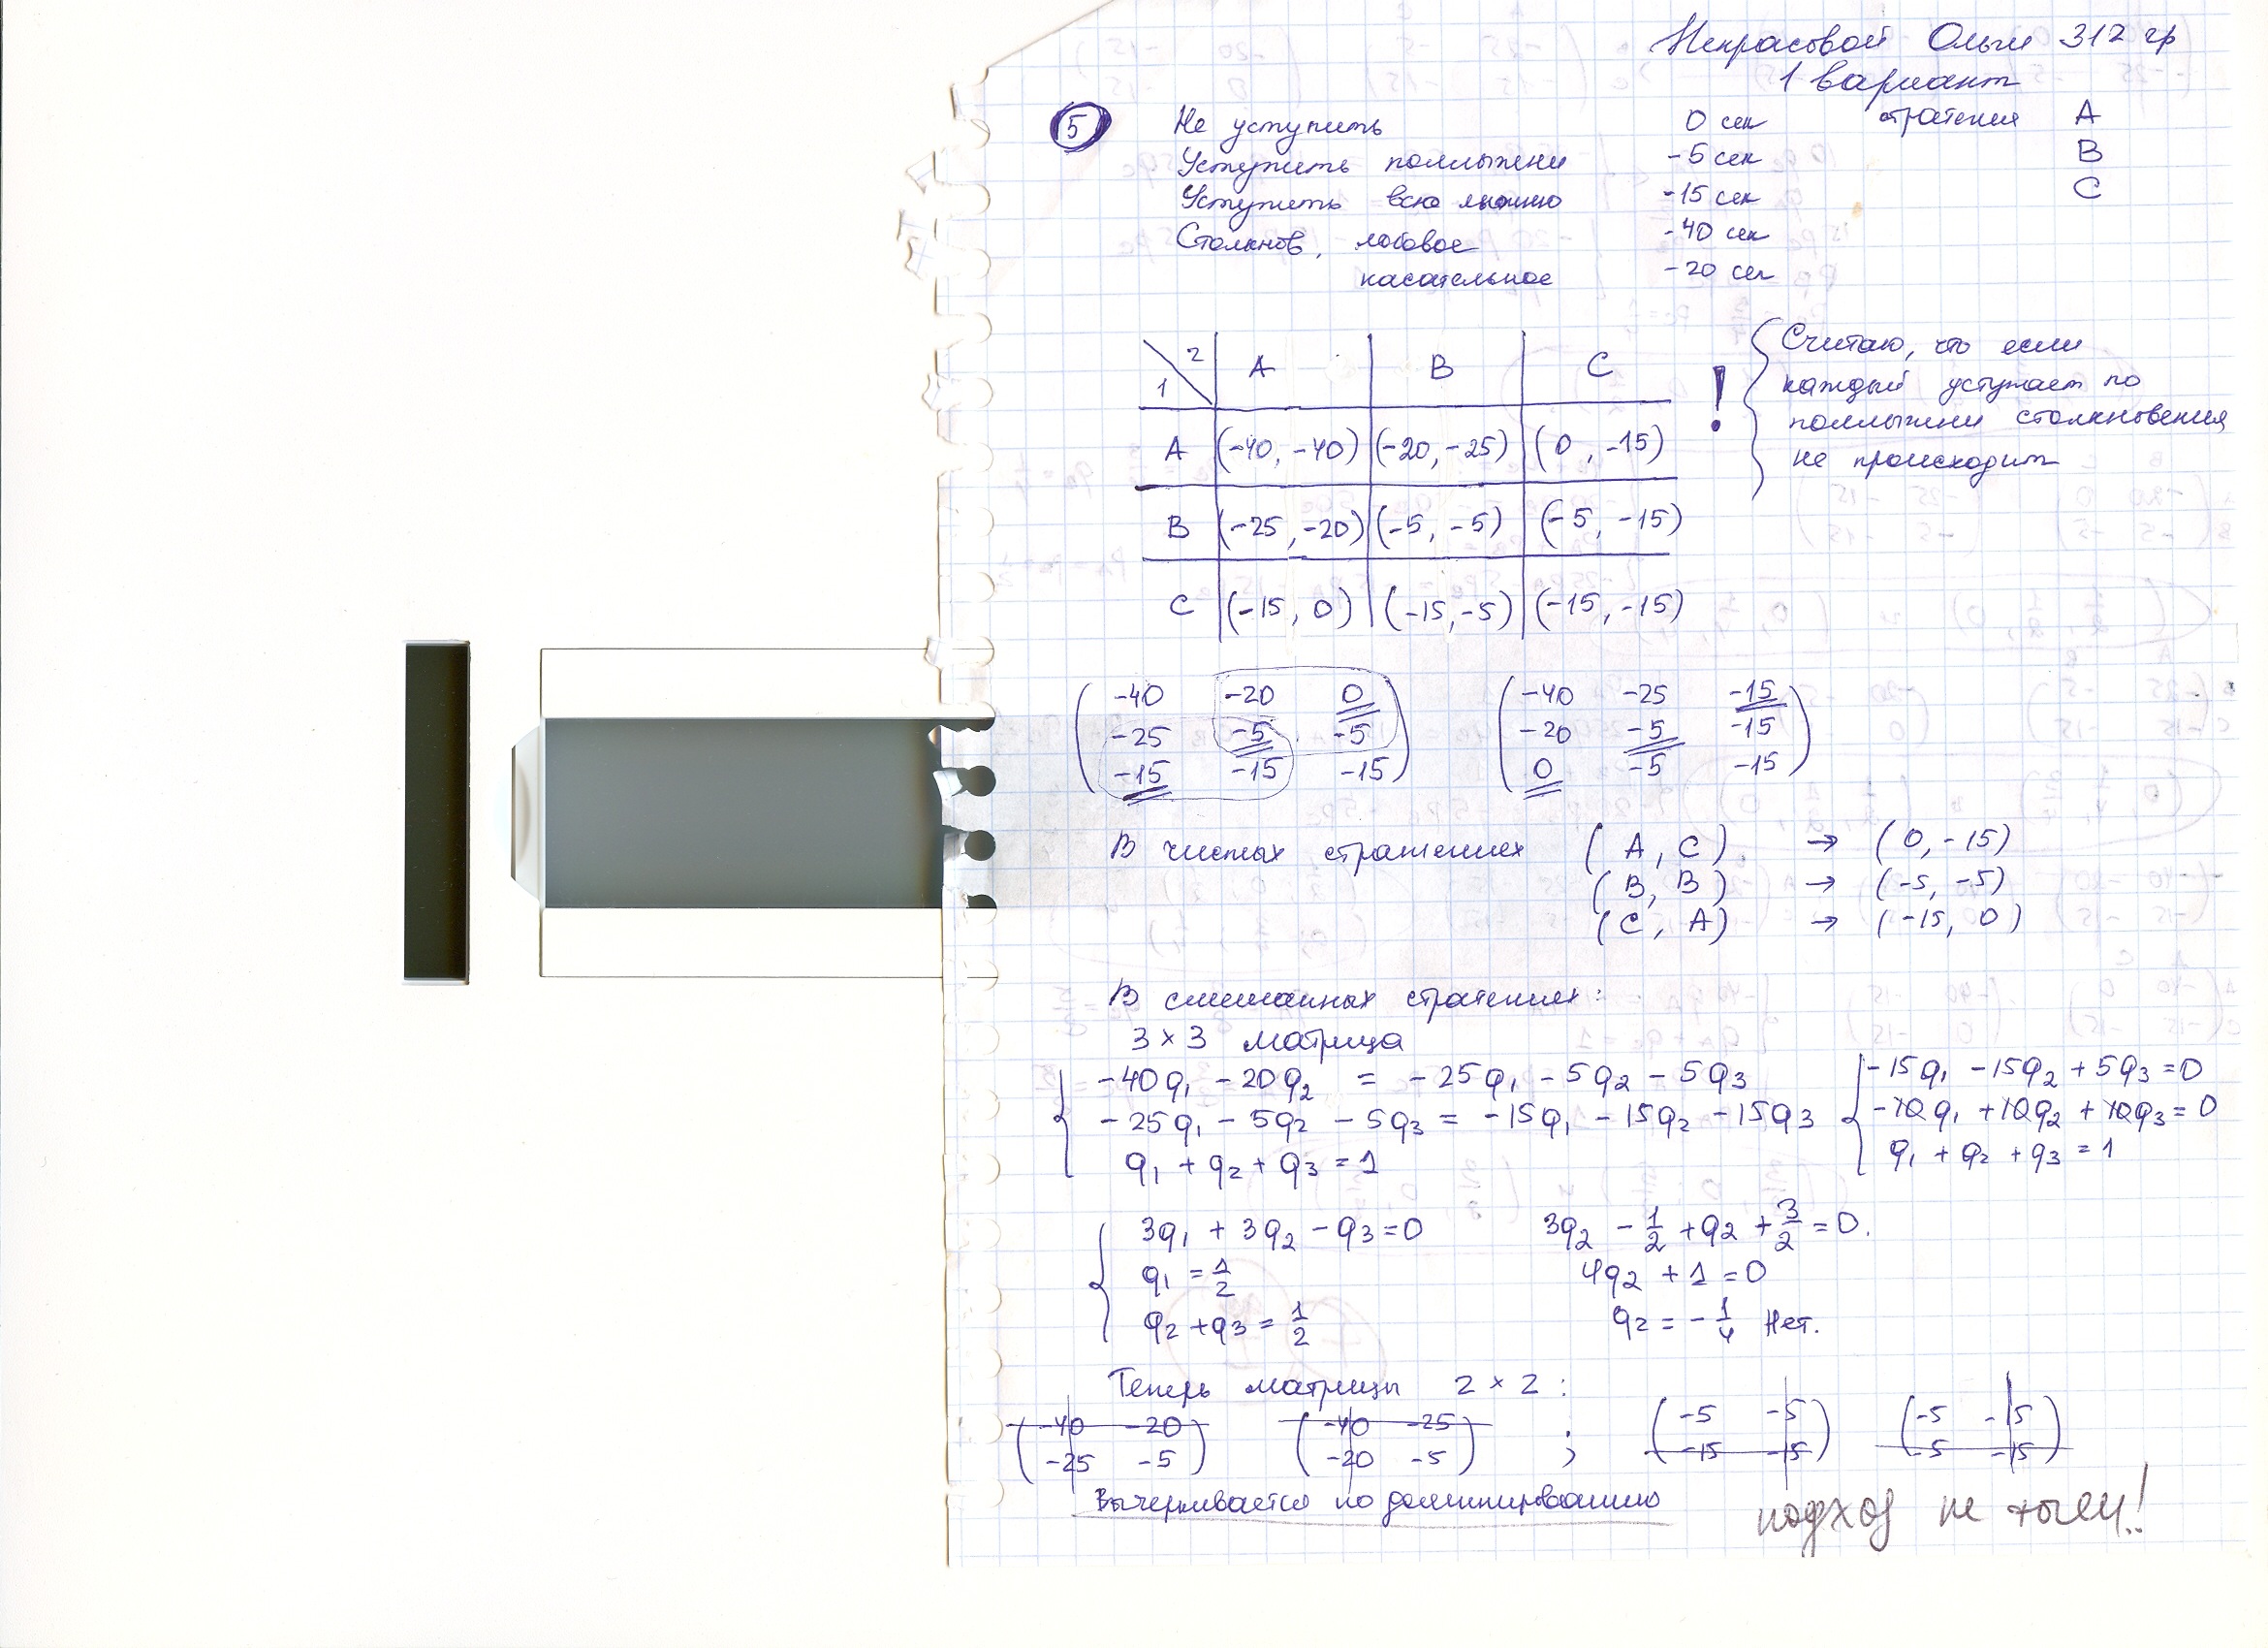 Некрасовой Ольги 312 гр
1 вариант
5 Не уступить 0 сек стратегия A
Уступить поллыжни -5 сек B
Уступить всю лыжню -15 сек C
Столкнов. лобовое -40 сек
касательное -20 сек
1 \ 2 A B C
A (-40, -40) (-20, -25) (0, -15)
B (-25, -20) (-5, -5) (-5, -15)
C (-15, 0) (-15, -5) (-15, -15)
! { Считаю, что если
каждый уступает по
поллыжни столкновения
не происходит
( -40 -20 0 ) ( -40 -25 -15 )
( -25 -5 -5 ) ( -20 -5 -15 )
( -15 -15 -15 ) ( 0 -5 -15 )
В чистых стратегиях (A, C) → (0, -15)
(B, B) → (-5, -5)
(C, A) → (-15, 0)
В смешанных стратегиях:
3 × 3 матрица
-40q₁ - 20q₂ = -25q₁ - 5q₂ - 5q₃ -15q₁ - 15q₂ + 5q₃ = 0
-25q₁ - 5q₂ - 5q₃ = -15q₁ - 15q₂ - 15q₃ -10q₁ + 10q₂ + 10q₃ = 0
q₁ + q₂ + q₃ = 1 q₁ + q₂ + q₃ = 1
3q₁ + 3q₂ - q₃ = 0 3q₂ - 1/2 + q₂ + 3/2 = 0.
q₁ = 1/2 4q₂ + 1 = 0
q₂ + q₃ = 1/2 q₂ = - 1/4 Нет.
Теперь матрицы 2 × 2 :
( -40 -20 ) ( -40 -25 ) ; ( -5 -5 ) ( -5 -15 )
( -25 -5 ) ( -20 -5 ) ( -15 -15 ) ( -5 -15 )
Вычеркивается по доминированию
подход не